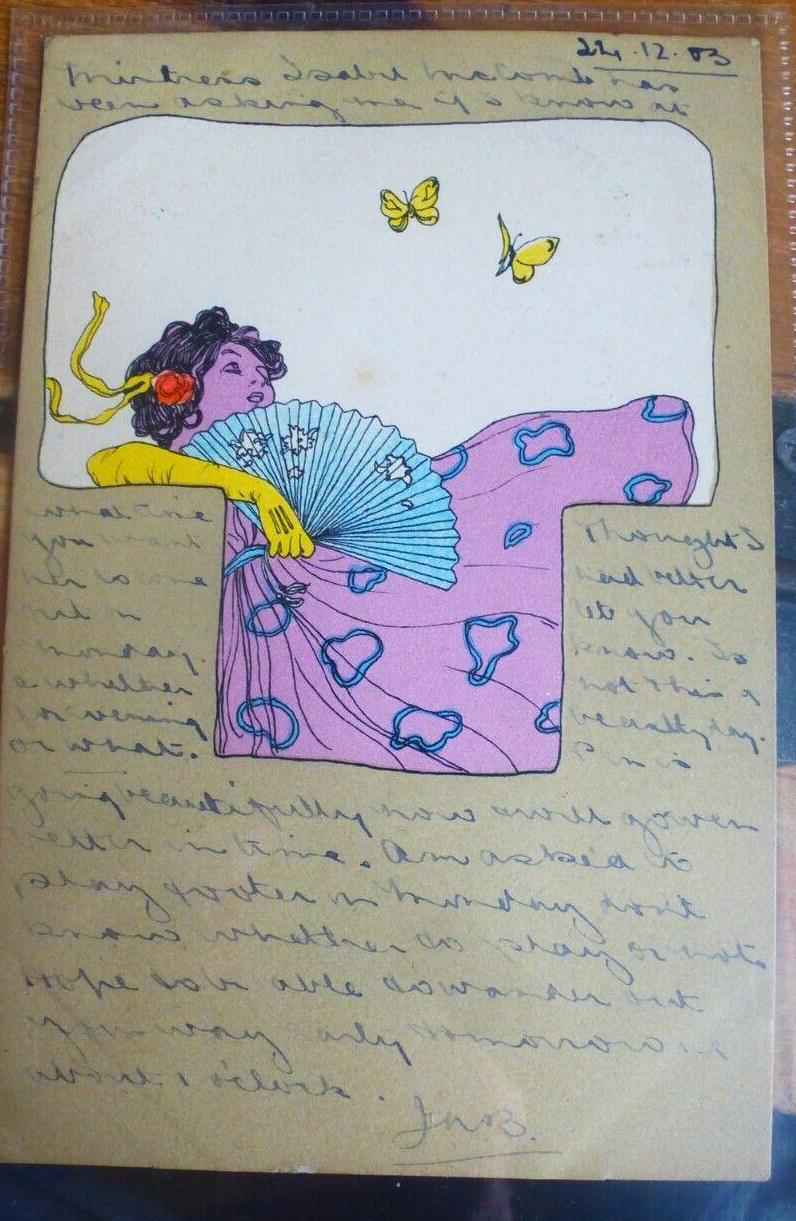 22.12.03
Mistress Isabel McComb has
been asking me if I know at
what time
you want
her to come
out on
Monday.
whether
for evening
or what.
Thought I
had better
let you
know. Is
not this a
beastly day.
Pen is
going beautifully now will go even
better in time. Am asked to
play footer on Monday don't
know whether to play or not
hope to be able to wander out
your way tomorrow
about 1 o'clock.